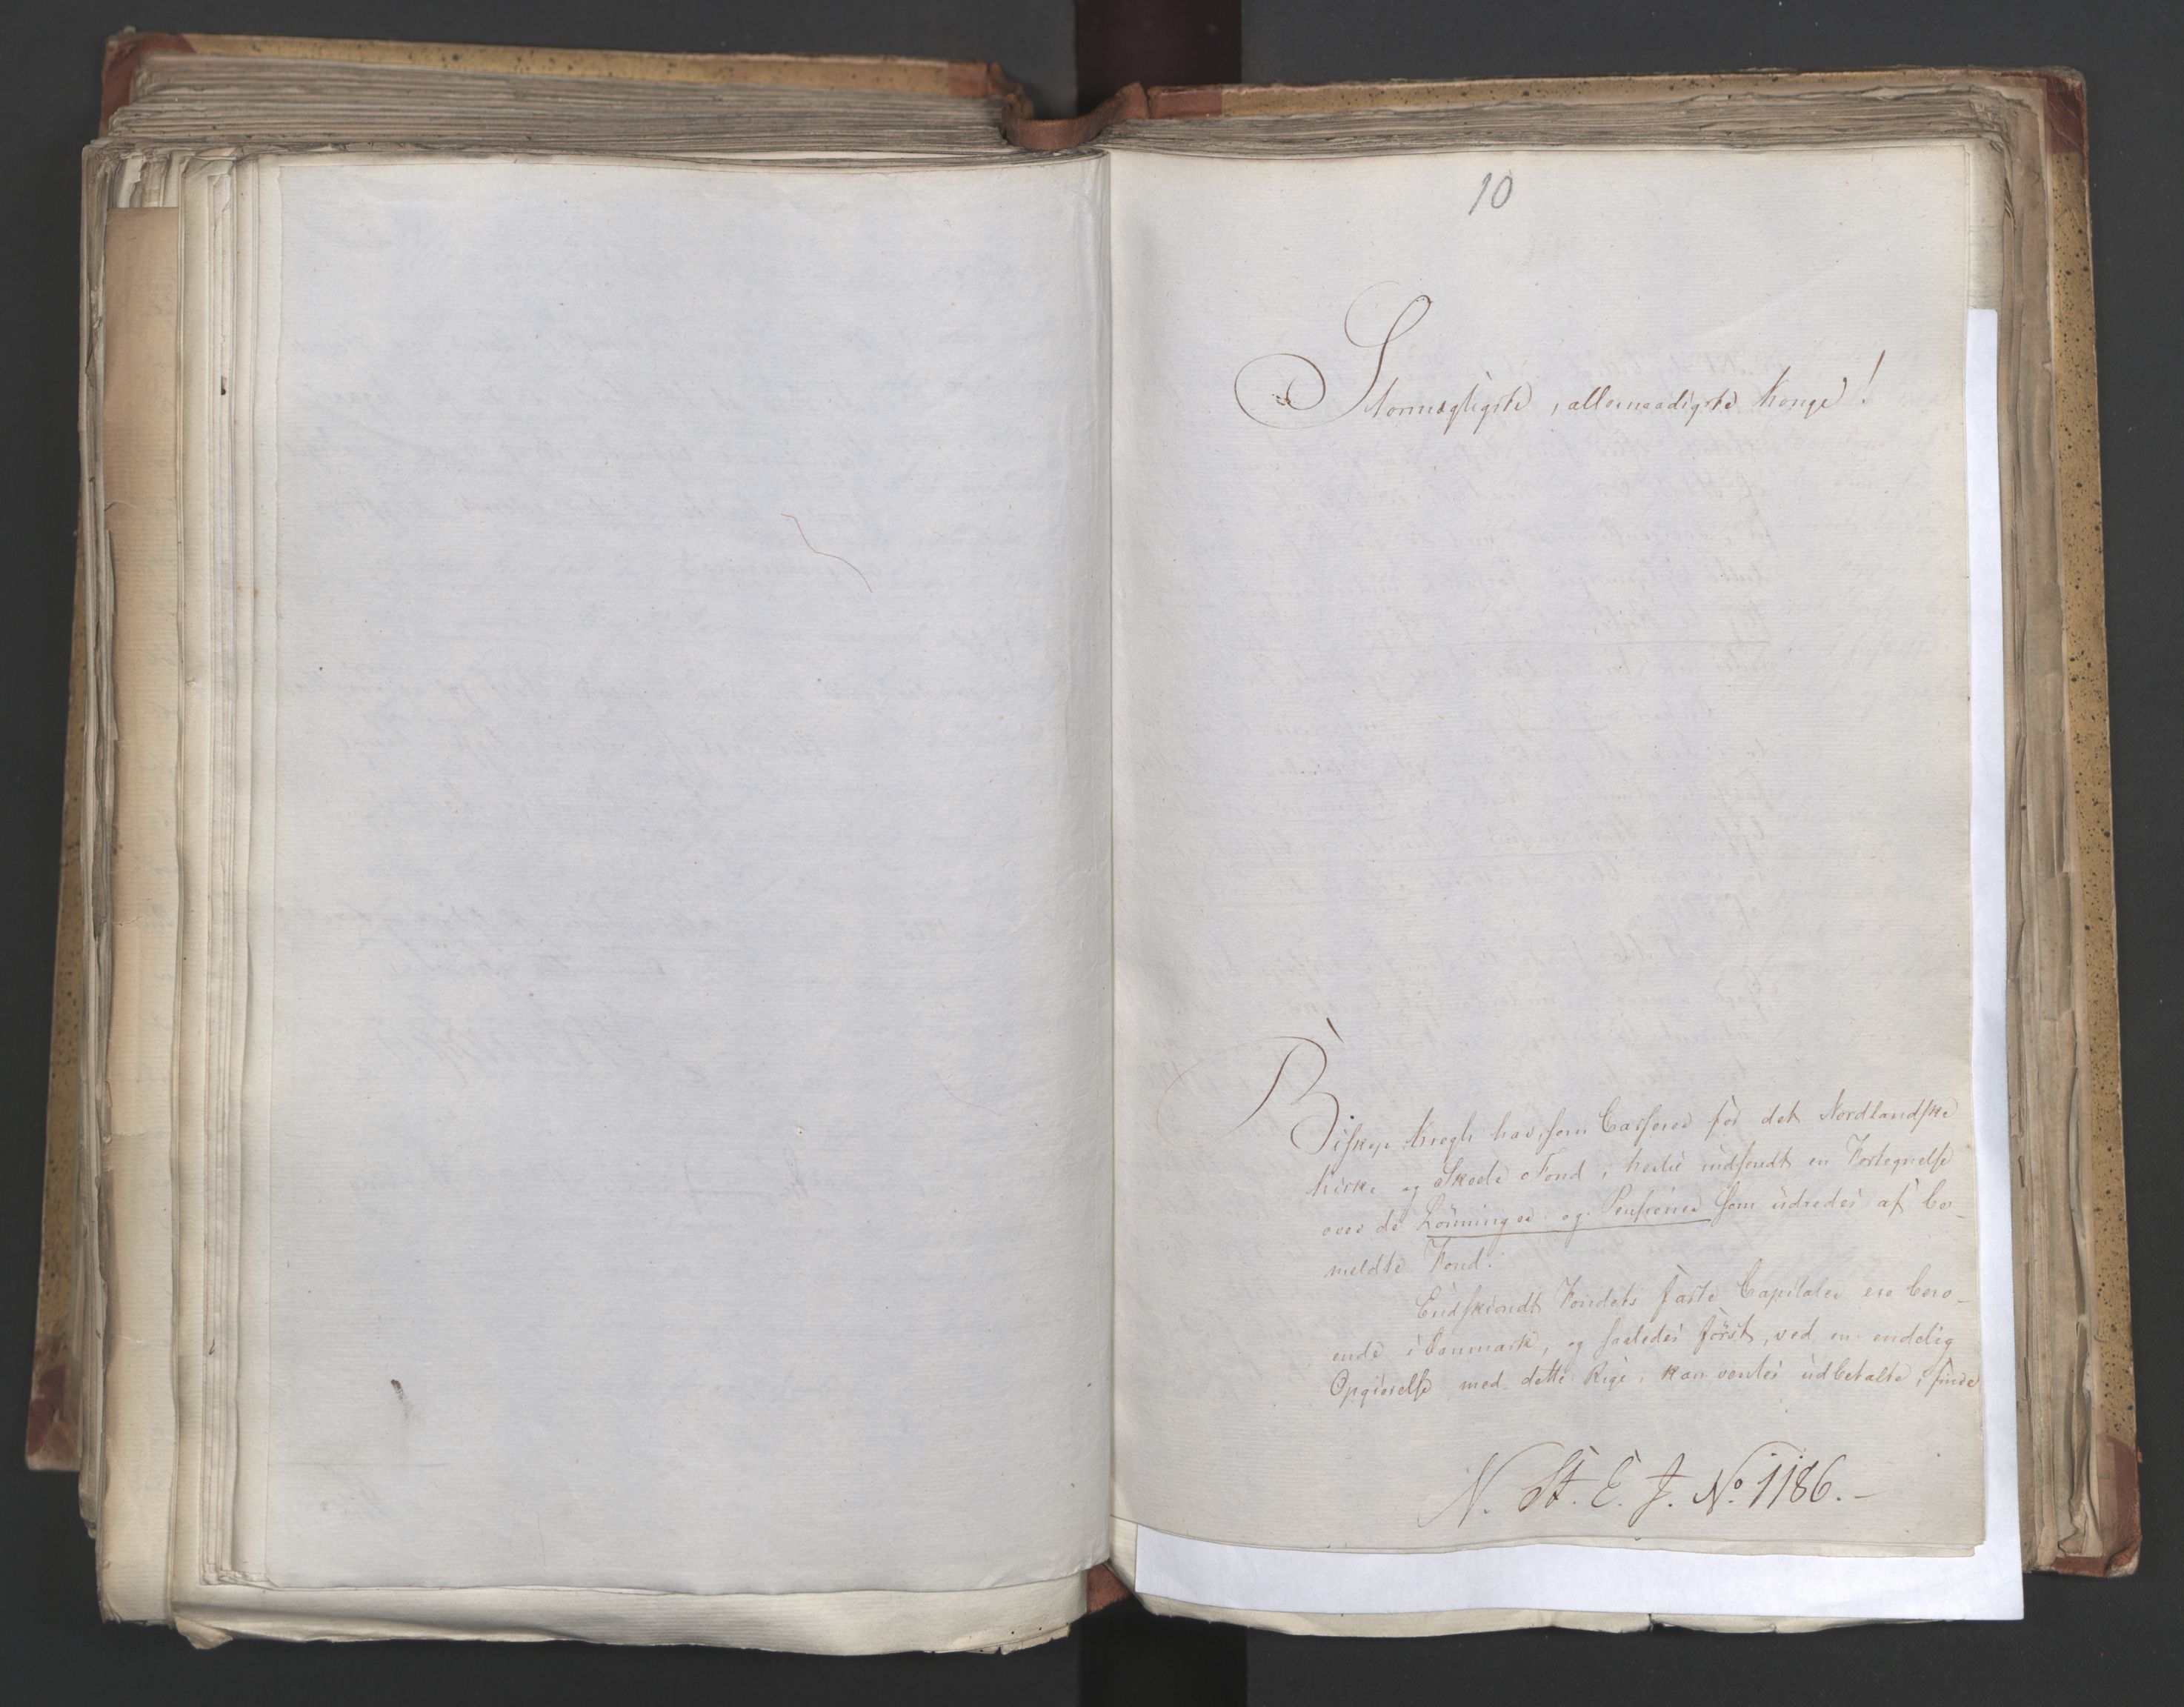 10
Stormægtigste, allernaadigste Konge!
Biskop Krogh har, som Casserer for det Nordlandske
Kirke og Skole Fond, hertil indsendt en Fortegnelse
over de Lønninger og Pensioner som udredes af be-
meldte Fond.
Endskiøndt Fondets faste Capitaler ere bero-
ende i Danmark, og saaledes først, ved en endelig
Opgiørelse med dette Rige, kan ventes udbetalte, finde
N. St. E. J. No. 1186.-